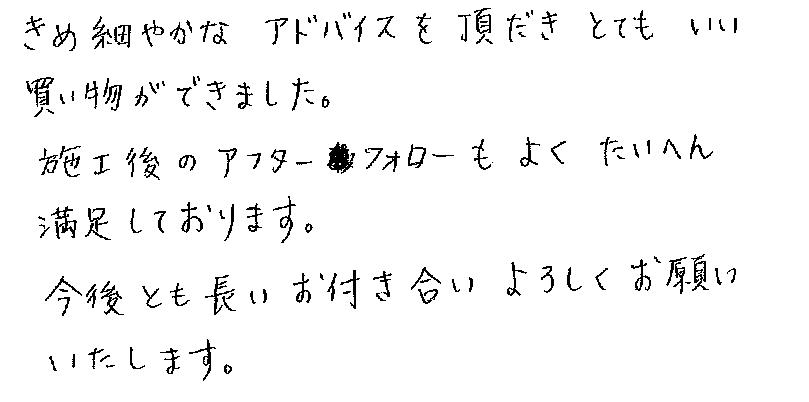 きめ細やかな アドバイスを 頂だき とても いい
買い物ができました。
施工後のアフターフォローも よく たいへん
満足しております。
今後とも長いお付き合い よろしくお願い
いたします。